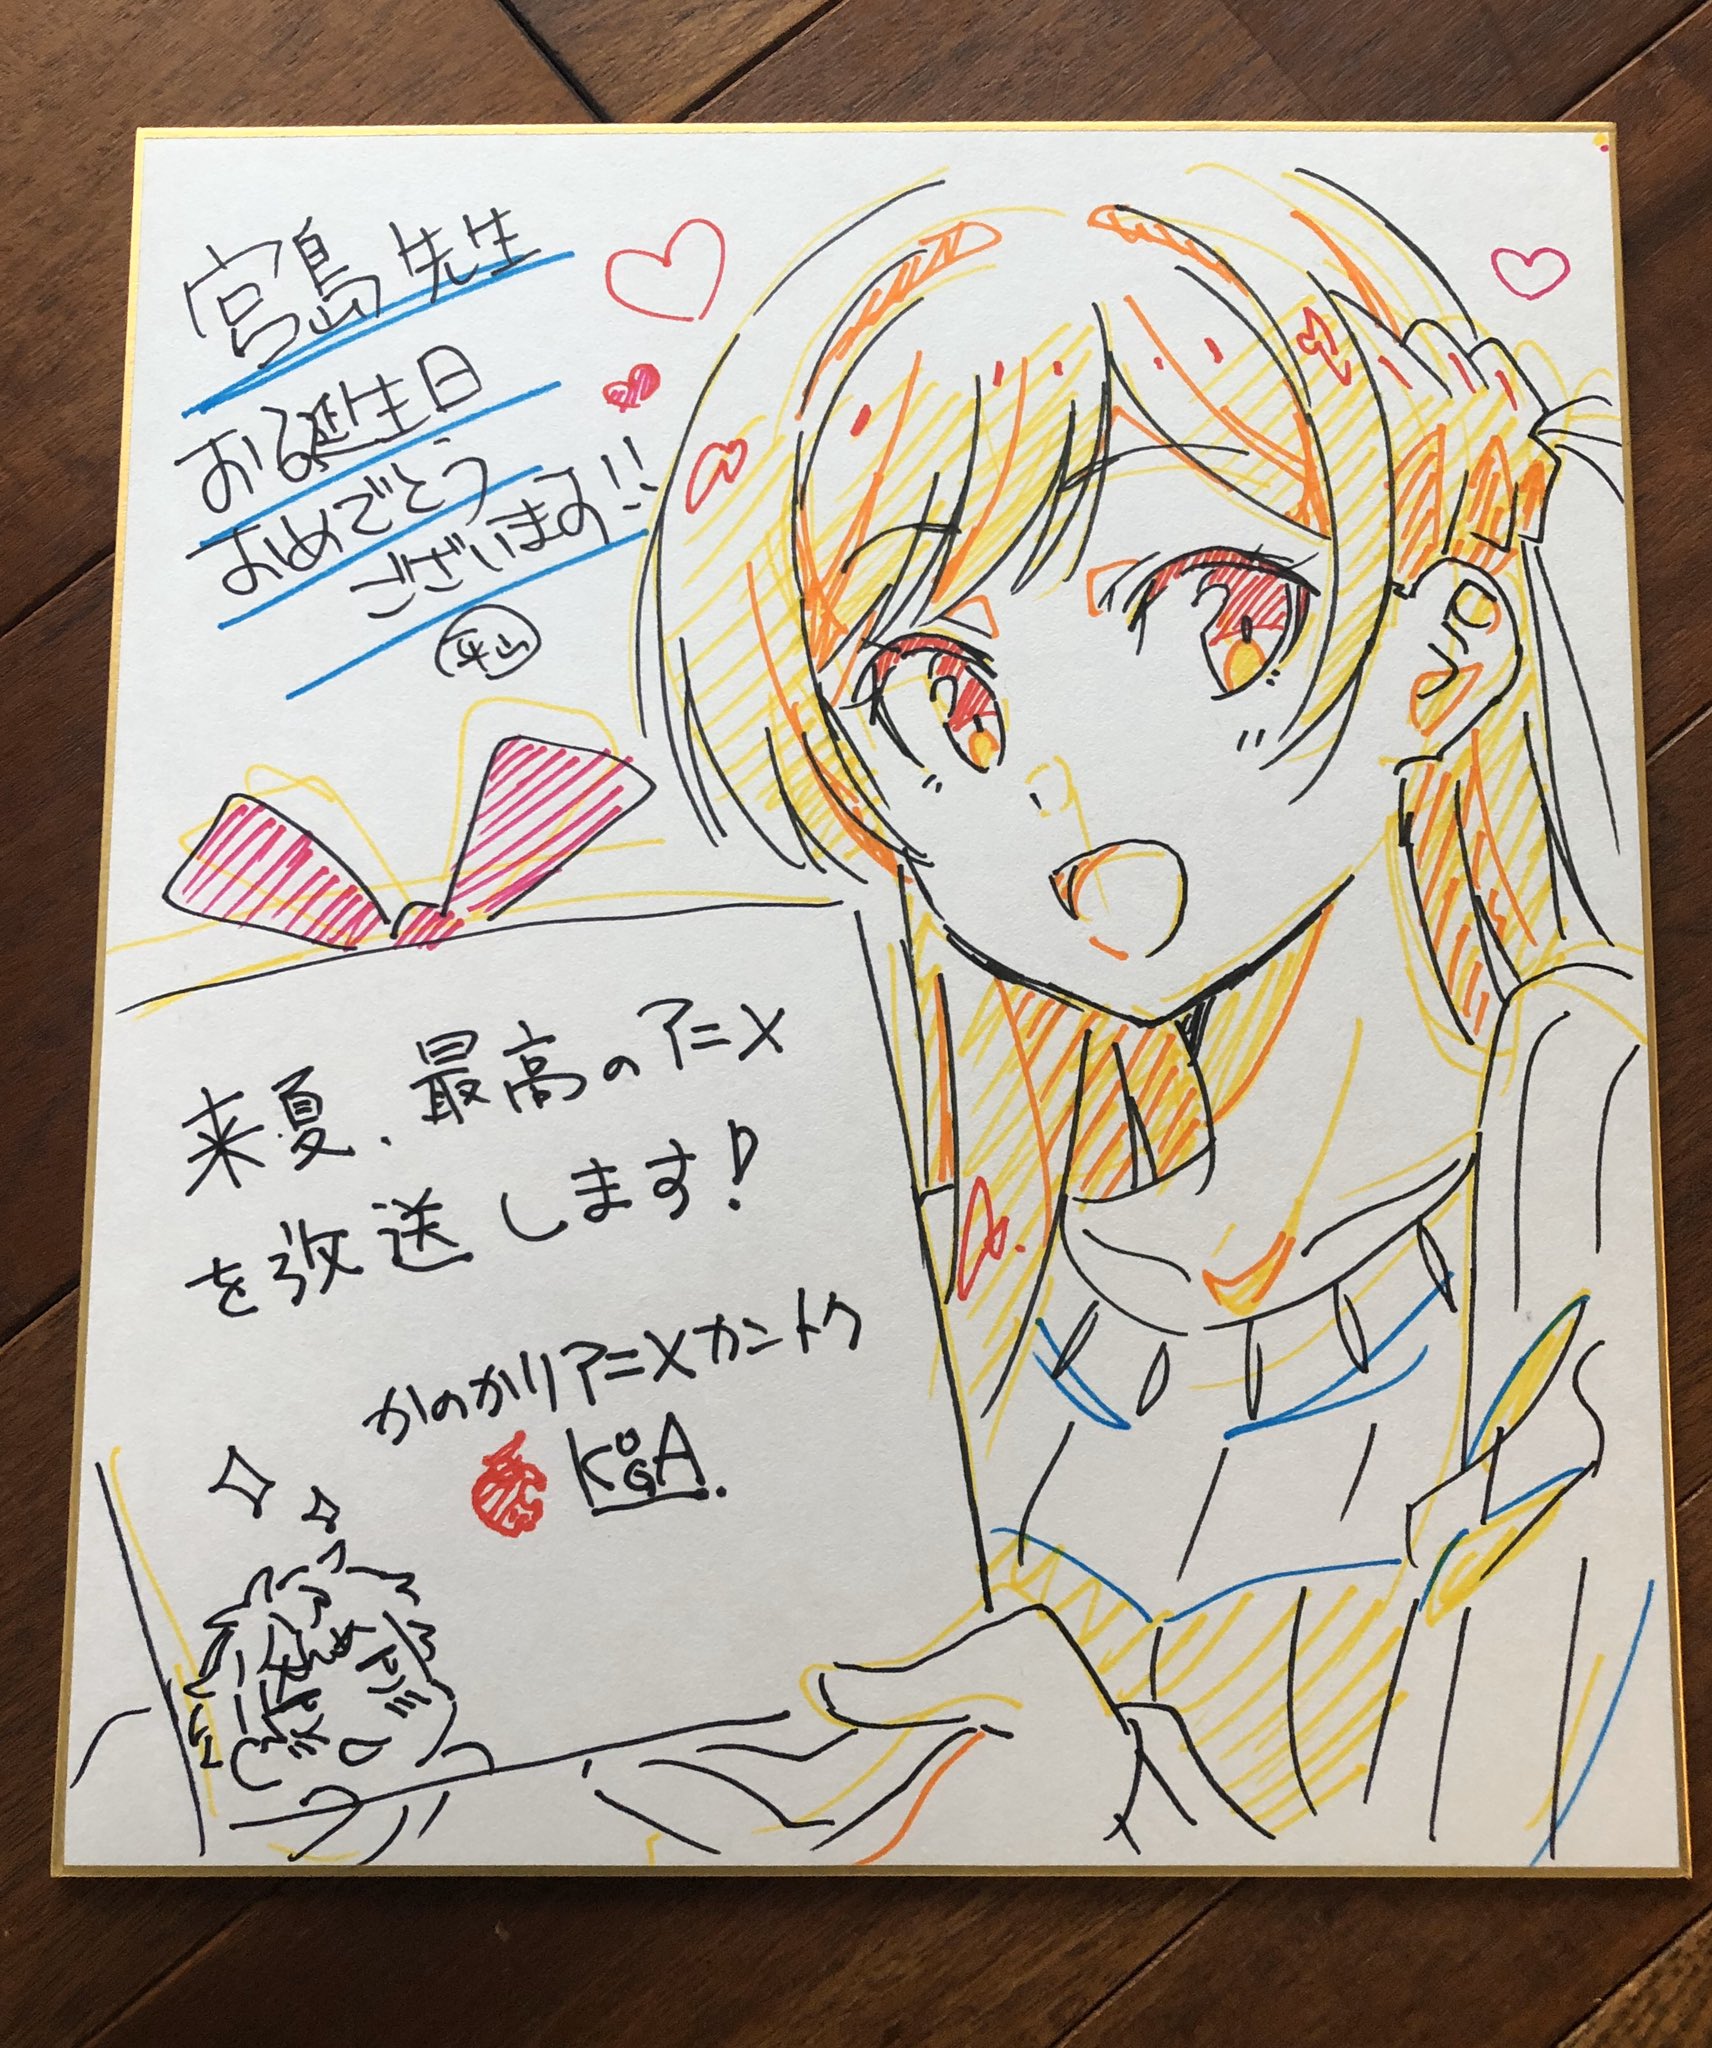 宮島先生
お誕生日
おめでとう
ございます!!
平山
来夏、最高のアニメ
を放送します!
かのかりアニメカントク
KOGA.